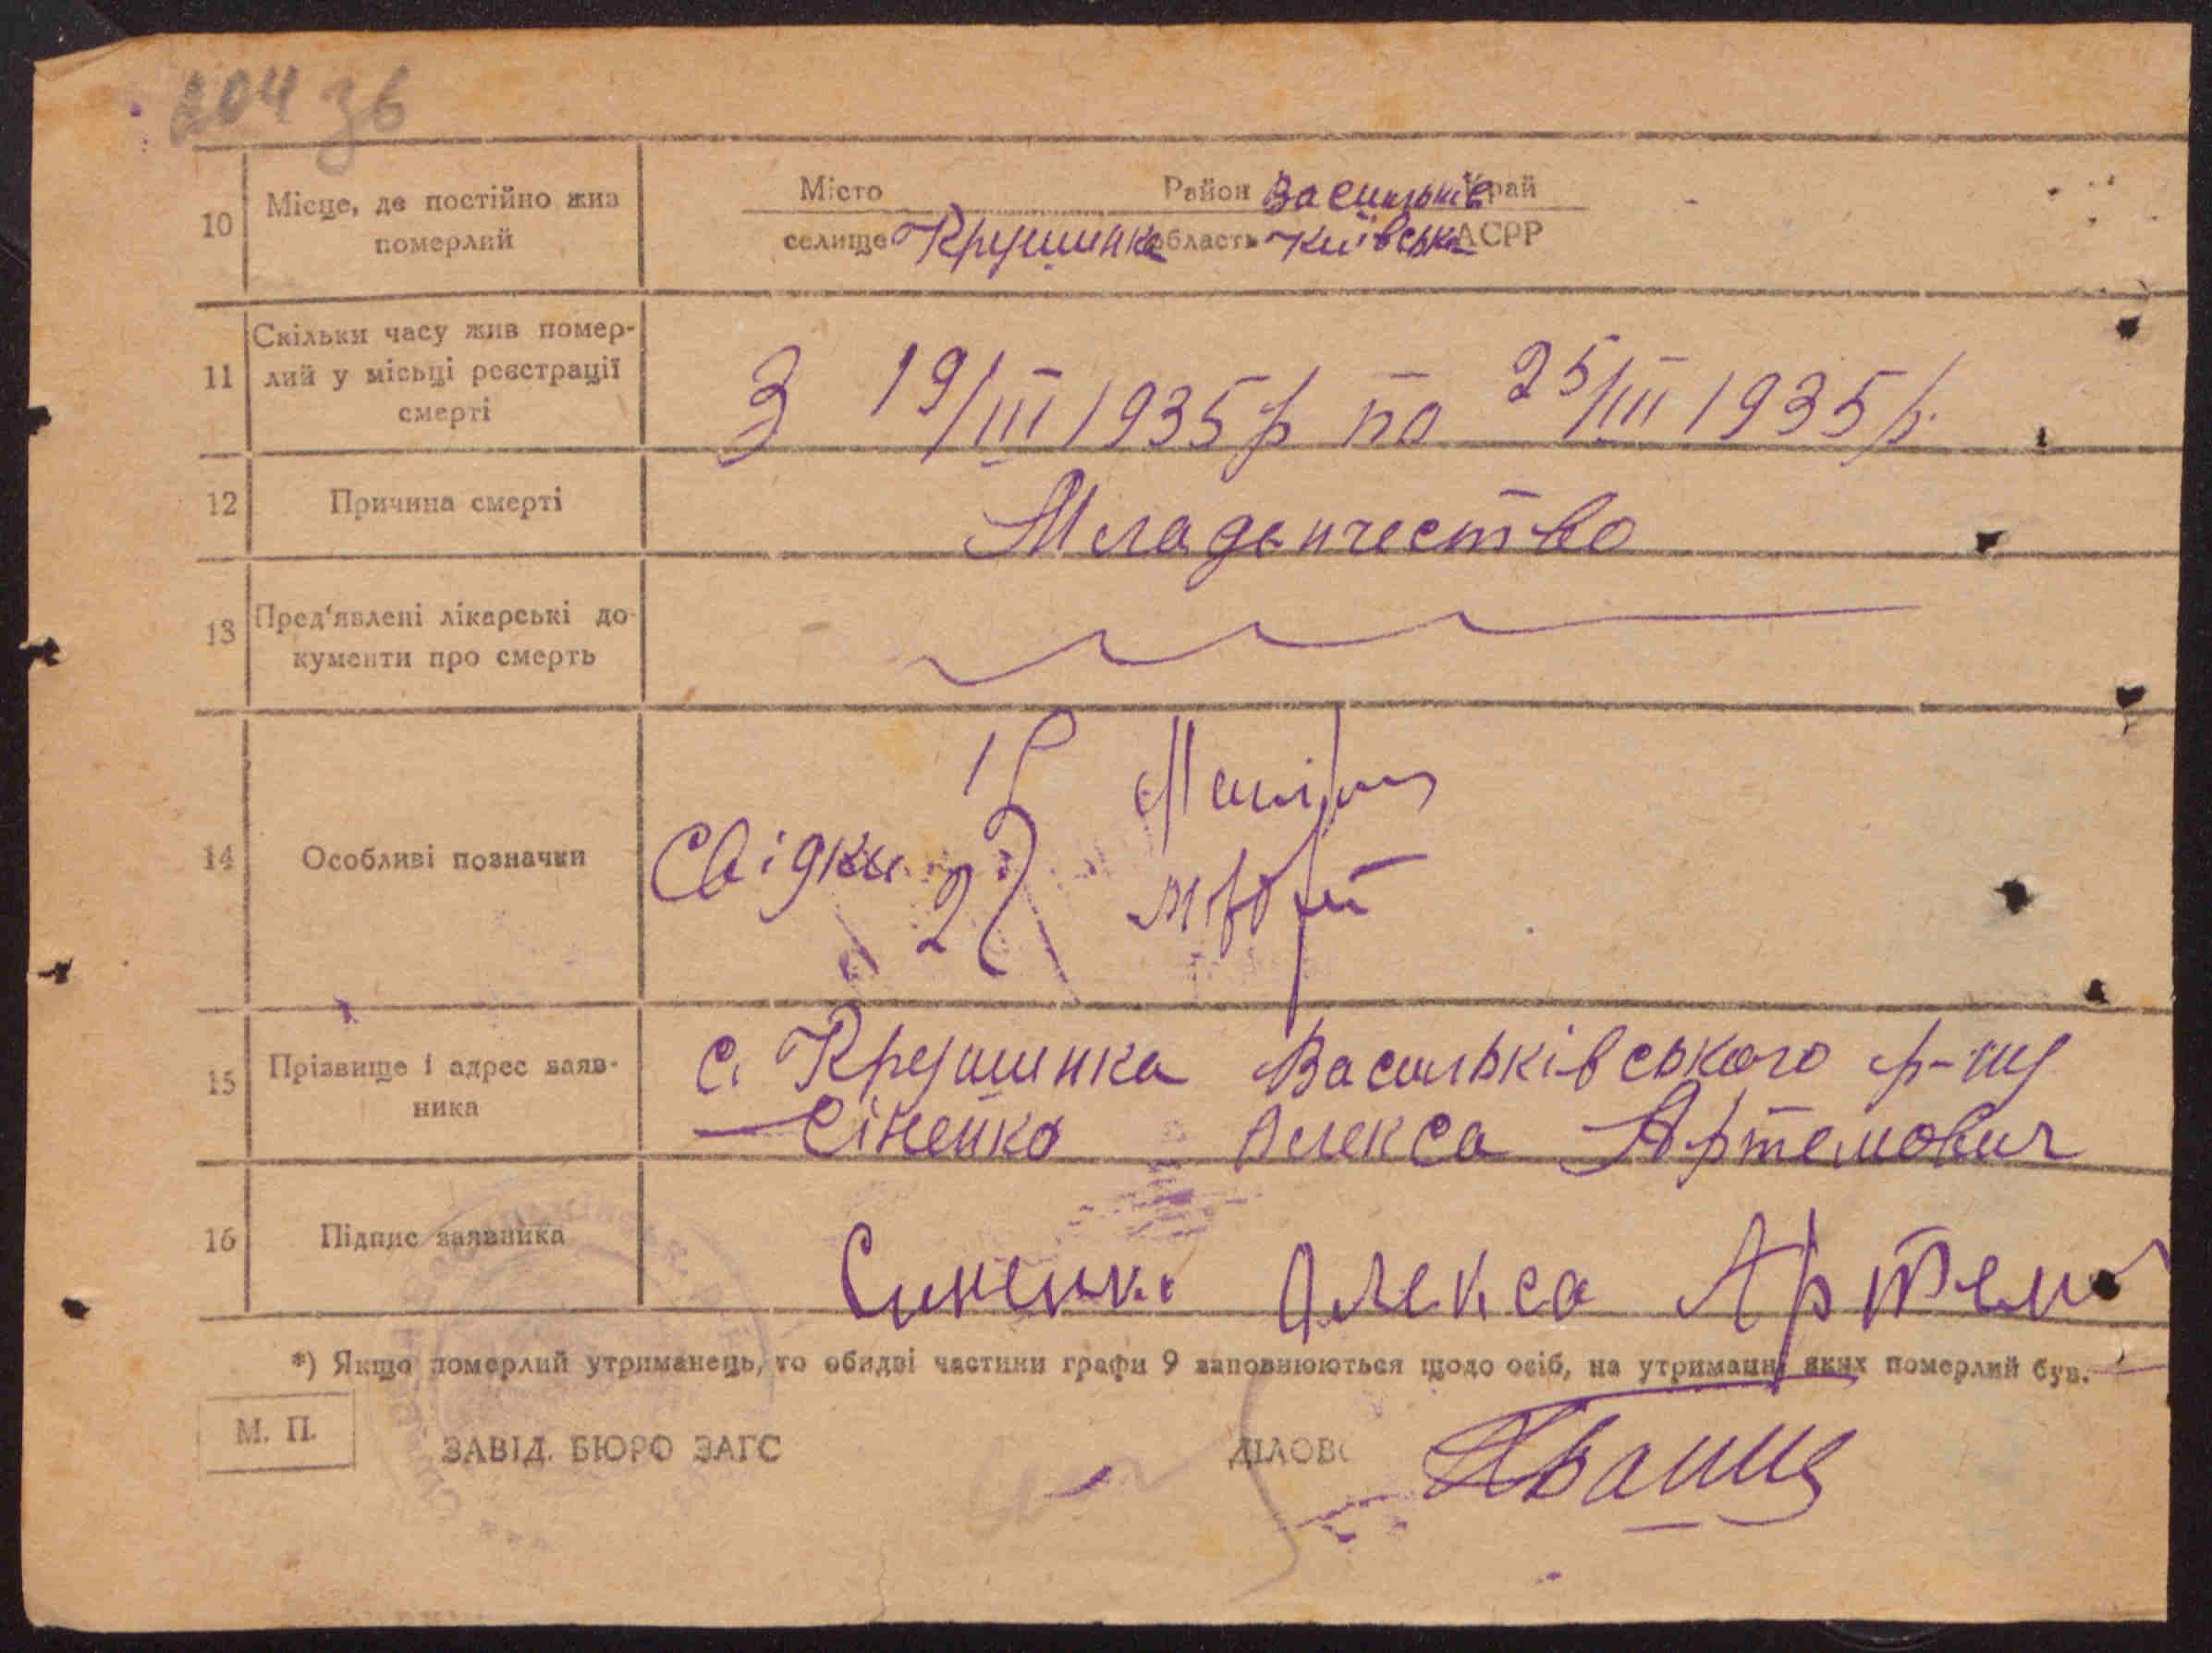 204 зв
10 Місце, де постійно жив померлий
Місто Район Васильків Край
селище Крушинка область Київська АСРР
11 Скільки часу жив помер-
лий у місьці реєстрації
смерті
З 19/III 1935 р по 25/III 1935 р.
12 Причина смерті Младенчество
13 Пред'явлені лікарські до-
кументи про смерть
14 Особливі позначки
Свідки 1)
2)
15 Прізвище і адрес заяв-
ника
с. Крушинка Васильківського р-ну
Сіненко Алекса Артемович
16 Підпис заявника Синенко Алекса Артем
*) Якщо померлий утриманець, то обидві частини графи 9 заповнюються щодо осіб, на утриманні яких померлий був.
М. П.
ЗАВІД. БЮРО ЗАГС ДІЛОВ